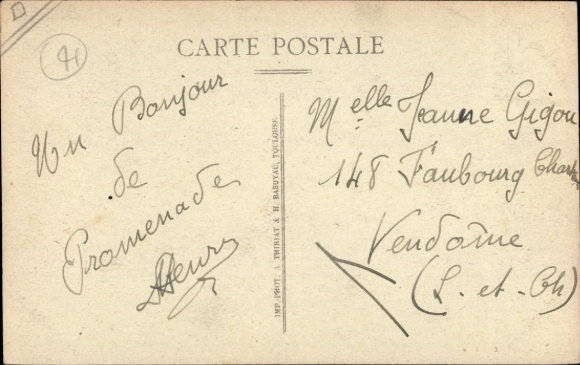 41
CARTE POSTALE
Un Bonjour
de
Promenade
Henry
IMP.-PHOT. A. THIRIAT & H. BASUYAU, TOULOUSE
Melle Jeanne Gigou
148 Faubourg Chart
Vendôme
(L.-et-Ch)